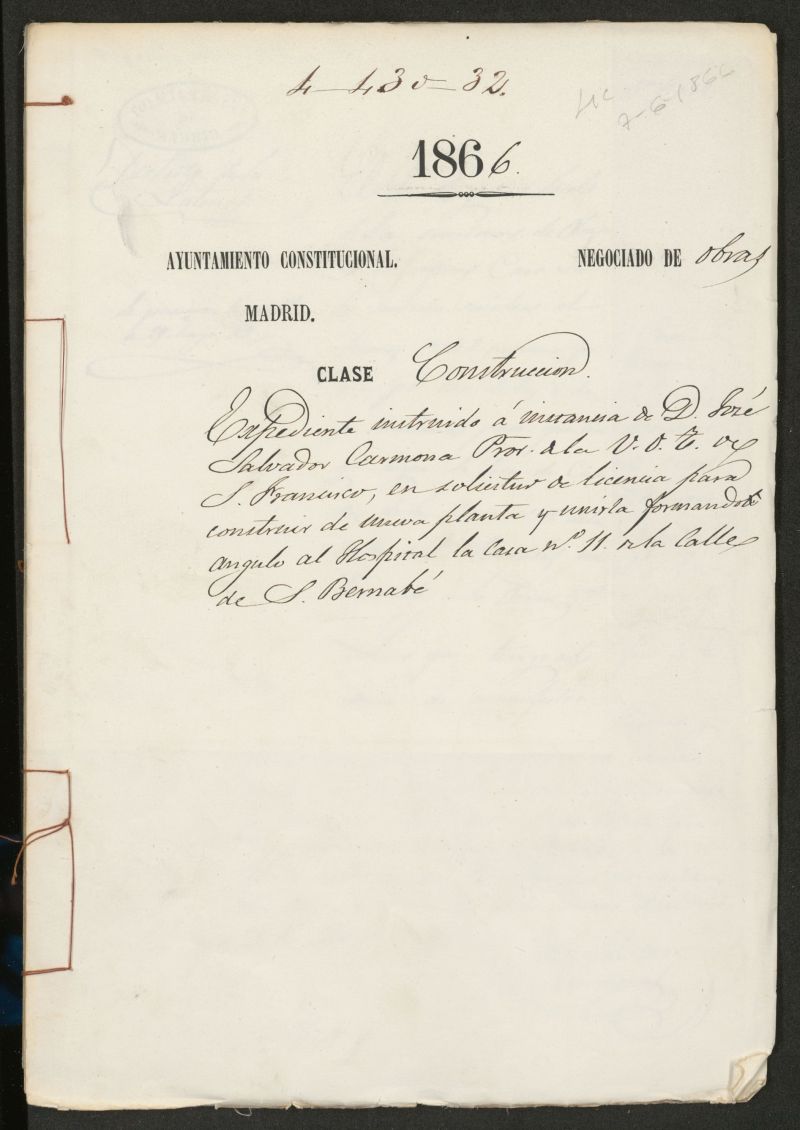 4-430-32.
Lic
7-6-1866
1866.
AYUNTAMIENTO CONSTITUCIONAL.
NEGOCIADO DE obras
MADRID.
CLASE Construccion.
Expediente instruido á instancia de D. José
Salvador Carmona Pror. de la V. O. T. de
S. Francisco, en solicitud de licencia para
construir de nueva planta y unirla formando
angulo al Hospital la Casa nº. 11. de la Calle
de S. Bernabé